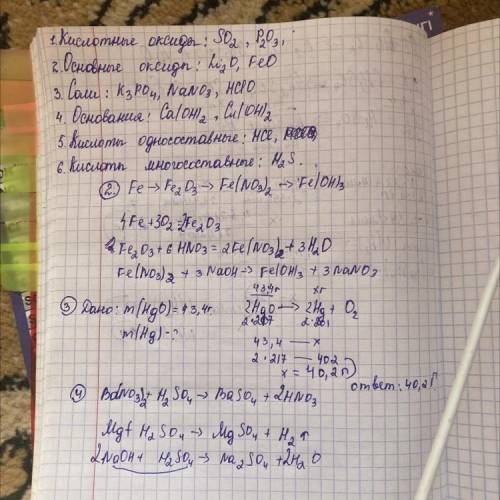 1. Кислотные оксиды: SO₂, P₂O₃,
2. Основные оксиды: Li₂O, FeO
3. Соли: K₃PO₄, NaNO₃, HClO
4. Основания: Ca(OH)₂, Cu(OH)₂
5. Кислоты односоставные: HCl,
6. Кислоты многосоставные: H₂S.
② Fe → Fe₂O₃ → Fe(NO₃)₂ → Fe(OH)₃
4Fe + 3O₂ = 2Fe₂O₃
Fe₂O₃ + 6HNO₃ = 2Fe(NO₃)₂ + 3H₂O
Fe(NO₃)₂ + 3NaOH → Fe(OH)₃ + 3NaNO₃
43,4г xг
③ Дано: m(HgO) = 43,4г. 2HgO → 2Hg + O₂
m(Hg) - ? 2·217 2·201
43,4 — x
2·217 — 402
x = 40,2г)
ответ: 40,2г
④ Ba(NO₃)₂ + H₂SO₄ → BaSO₄ + 2HNO₃
Mg + H₂SO₄ → MgSO₄ + H₂↑
2NaOH + H₂SO₄ → Na₂SO₄ + 2H₂O